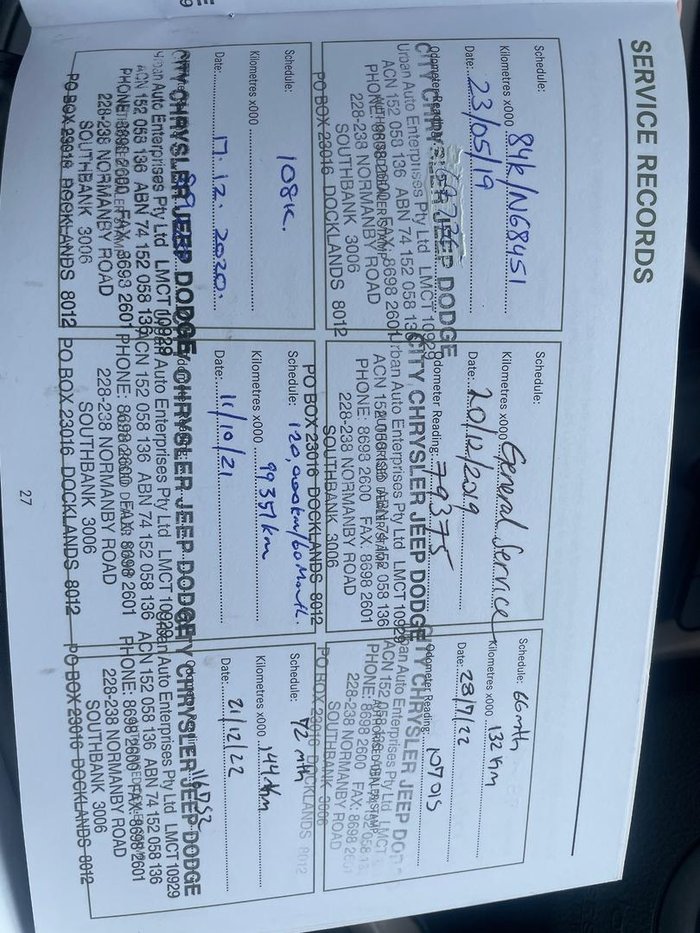 SERVICE RECORDS
Schedule:
Kilometres x000 84k/N68451
Date: 23/05/19
Odometer Reading:
CITY CHRYSLER JEEP DODGE
Urban Auto Enterprises Pty Ltd LMCT 10929
ACN 152 058 136 ABN 74 152 058 136
PHONE: 8698 2600 FAX: 8698 2601
228-238 NORMANBY ROAD
SOUTHBANK 3006
PO BOX 23016 DOCKLANDS 8012
Schedule:
Kilometres x000 General Service
Date: 20/12/2019
Odometer Reading: 79375
CITY CHRYSLER JEEP DODGE
Urban Auto Enterprises Pty Ltd LMCT 10929
ACN 152 058 136 ABN 74 152 058 136
PHONE: 8698 2600 FAX: 8698 2601
228-238 NORMANBY ROAD
SOUTHBANK 3006
PO BOX 23016 DOCKLANDS 8012
Schedule: 66mth
Kilometres x000 132 km
Date: 28/7/22
Odometer Reading: 107015
CITY CHRYSLER JEEP DODGE
Urban Auto Enterprises Pty Ltd LMCT
ACN 152 058 136
PHONE: 8698 2600 FAX: 8698 2601
228-238 NORMANBY ROAD
SOUTHBANK 3006
PO BOX 23016 DOCKLANDS 8012
Schedule: 108K.
Kilometres x000
Date: 17.12.2020.
CITY CHRYSLER JEEP DODGE
Urban Auto Enterprises Pty Ltd LMCT 10929
ACN 152 058 136 ABN 74 152 058 136
PHONE: 8698 2600 FAX: 8698 2601
228-238 NORMANBY ROAD
SOUTHBANK 3006
PO BOX 23016 DOCKLANDS 8012
Schedule: 120,000km/60Month.
Kilometres x000 99351km
Date: 11/10/21
CITY CHRYSLER JEEP DODGE
Urban Auto Enterprises Pty Ltd LMCT 10929
ACN 152 058 136 ABN 74 152 058 136
PHONE: 8698 2600 FAX: 8698 2601
228-238 NORMANBY ROAD
SOUTHBANK 3006
PO BOX 23016 DOCKLANDS 8012
Schedule: 72 mth
Kilometres x000 144km
Date: 21/12/22
116752
CITY CHRYSLER JEEP DODGE
Urban Auto Enterprises Pty Ltd LMCT 10929
ACN 152 058 136 ABN 74 152 058 136
PHONE: 8698 2600 FAX: 8698 2601
228-238 NORMANBY ROAD
SOUTHBANK 3006
PO BOX 23016 DOCKLANDS 8012
27